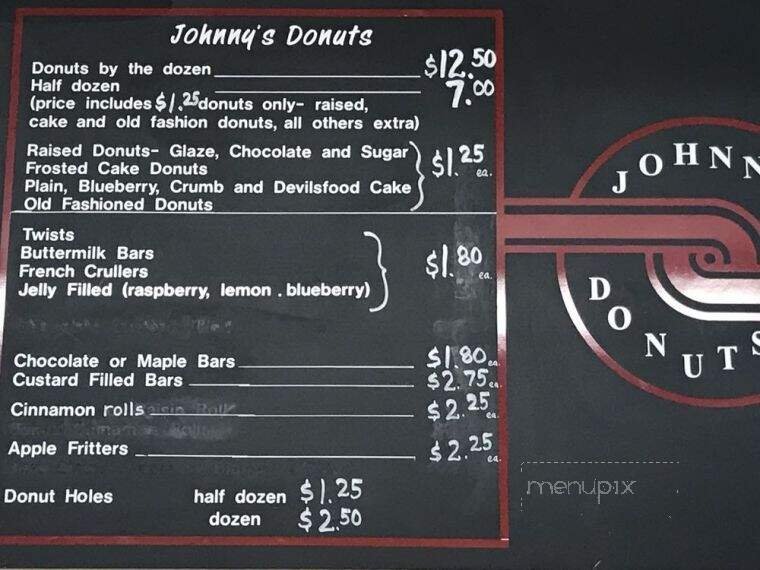 Johnny's Donuts
Donuts by the dozen $12.50
Half dozen 7.00
(price includes $1.25 donuts only- raised,
cake and old fashion donuts, all others extra)
Raised Donuts- Glaze, Chocolate and Sugar
Frosted Cake Donuts
Plain, Blueberry, Crumb and Devilsfood Cake
Old Fashioned Donuts
$1.25 ea.
Twists
Buttermilk Bars
French Crullers
Jelly Filled (raspberry, lemon . blueberry)
$1.80 ea.
Chocolate or Maple Bars $1.80 ea.
Custard Filled Bars $2.75 ea.
Cinnamon rolls $2.25 ea.
Apple Fritters $2.25 ea.
Donut Holes half dozen $1.25
dozen $2.50
JOHNN
DONUTS
menupix